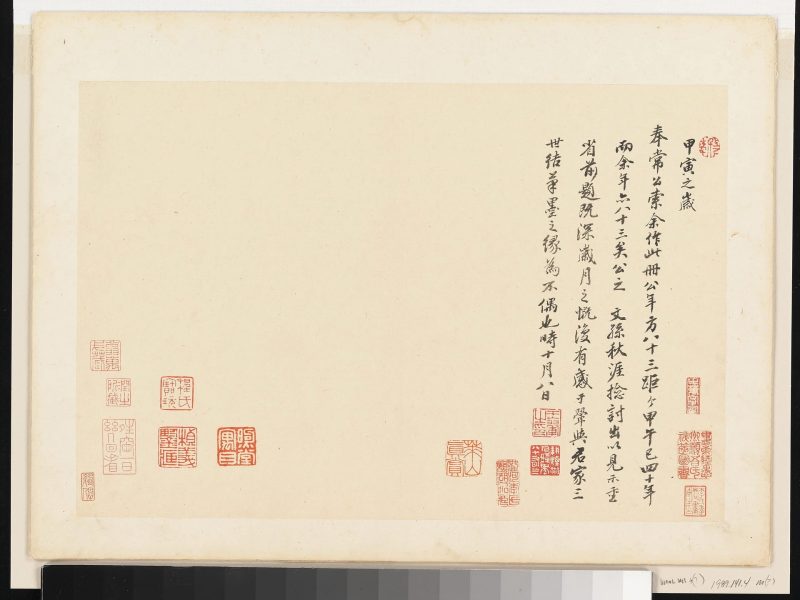 甲寅之歲
奉常公索余作此冊公年方八十三距今甲午已四十年
而余年亦八十三矣公之 文孫秋涯撿討出以見示重
省前題既深歲月之慨復有感于翚與君家三
世結筆墨之緣為不偶也時十月八日
萊山真賞
煦堂寓目
1989.141.4